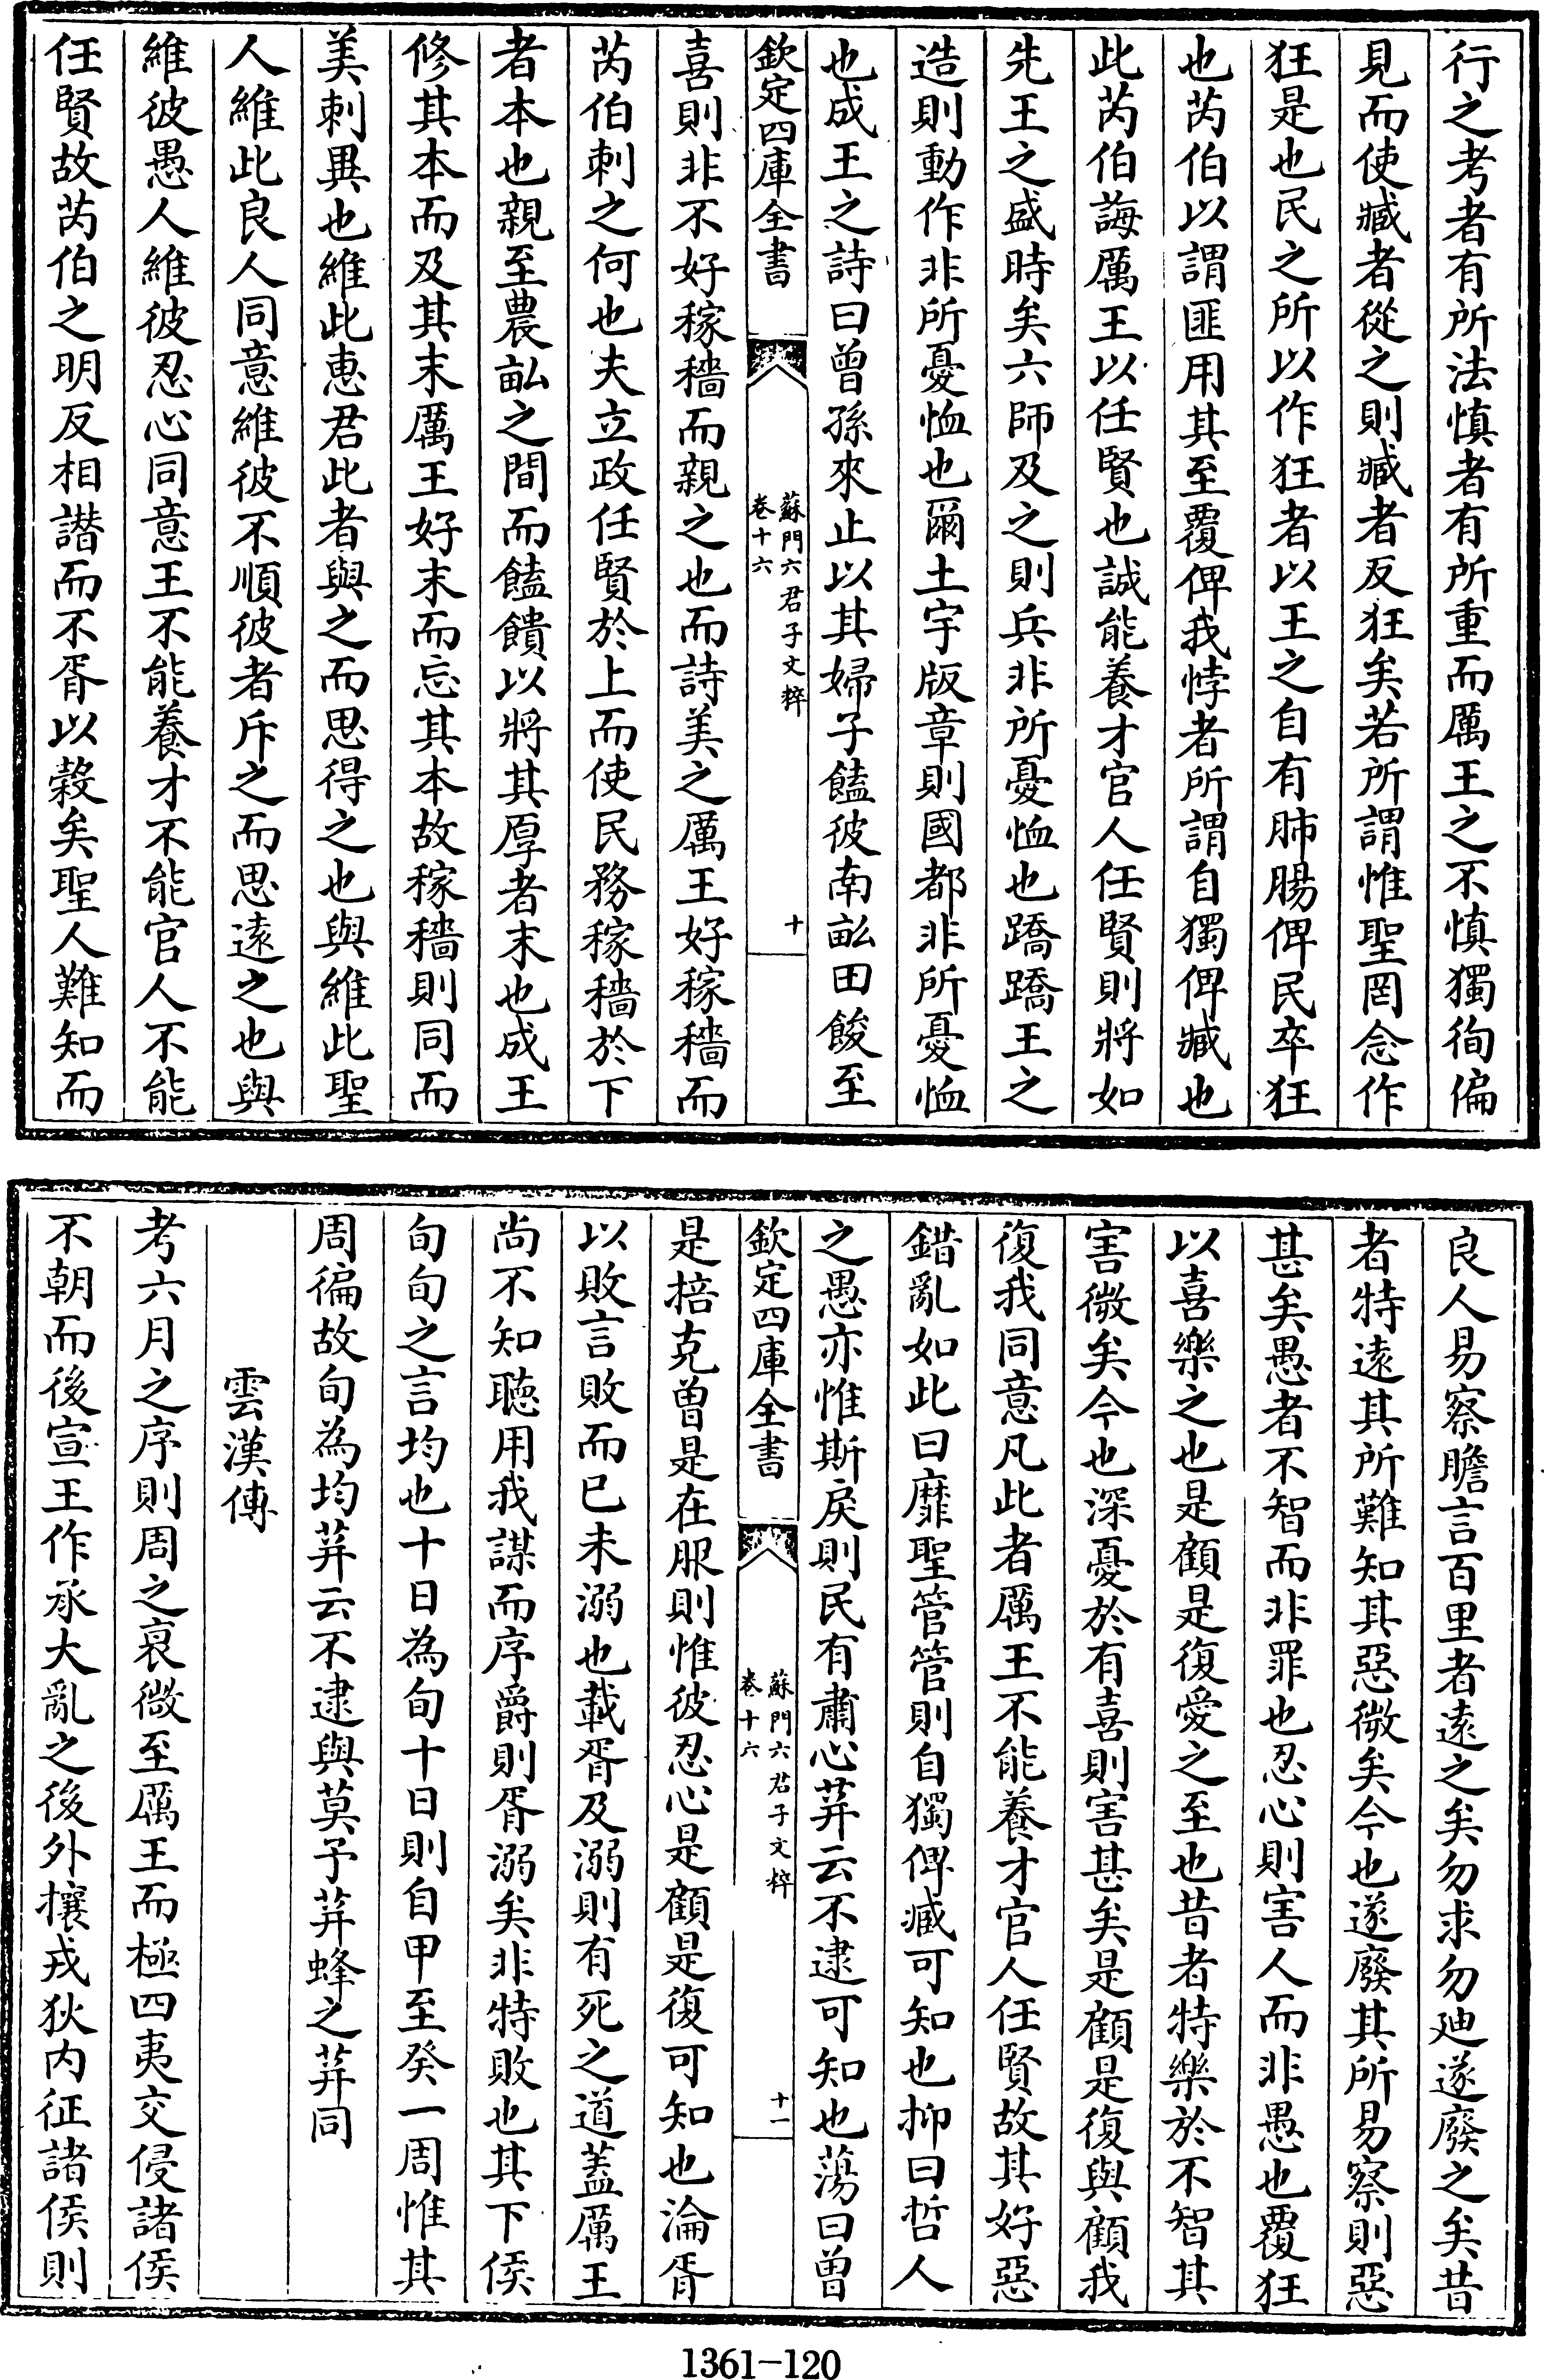 行之考者有所法慎者有所重而厲王之不慎獨徇偏
見而使臧者從之則臧者反狂矣若所謂惟聖罔念作
狂是也民之所以作狂者以王之自有肺腸俾民卒狂
也芮伯以謂匪用其至覆俾我悖者所謂自獨俾臧也
此芮伯誨厲王以任賢也誠能養才官人任賢則將如
先王之盛時矣六師及之則兵非所憂恤也蹻蹻王之
造則動作非所憂恤也爾土宇版章則國都非所憂恤
也成王之詩曰曾孫來止以其婦子饁彼南畝田畯至
欽定四庫全書
蘇門六君子文粹
卷十六
十
喜則非不好稼穡而親之也而詩美之厲王好稼穡而
芮伯刺之何也夫立政任賢於上而使民務稼穡於下
者本也親至農畝之間而饁饋以將其厚者末也成王
修其本而及其末厲王好末而忘其本故稼穡則同而
美刺異也維此惠君此者與之而思得之也與維此聖
人維此良人同意維彼不順彼者斥之而思遠之也與
維彼愚人維彼忍心同意王不能養才不能官人不能
任賢故芮伯之明反相譖而不胥以穀矣聖人難知而
良人易察瞻言百里者遠之矣勿求勿迪遂廢之矣昔
者特遠其所難知其惡微矣今也遂廢其所易察則惡
甚矣愚者不智而非罪也忍心則害人而非愚也覆狂
以喜樂之也是顧是復愛之至也昔者特樂於不智其
害微矣今也深憂於有喜則害甚矣是顧是復與顧我
復我同意凡此者厲王不能養才官人任賢故其好惡
錯亂如此曰靡聖管管則自獨俾臧可知也抑曰哲人
之愚亦惟斯戾則民有肅心荓云不逮可知也蕩曰曾
欽定四庫全書
蘇門六君子文粹
卷十六
十一
是掊克曾是在服則惟彼忍心是顧是復可知也淪胥
以敗言敗而已未溺也載胥及溺則有死之道蓋厲王
尚不知聽用我謀而序爵則胥溺矣非特敗也其下侯
旬旬之言均也十日為旬十日則自甲至癸一周惟其
周徧故旬為均荓云不逮與莫予荓蜂之荓同
雲漢傳
考六月之序則周之衰微至厲王而極四夷交侵諸侯
不朝而後宣王作承大亂之後外攘戎狄内征諸侯則
1361-120